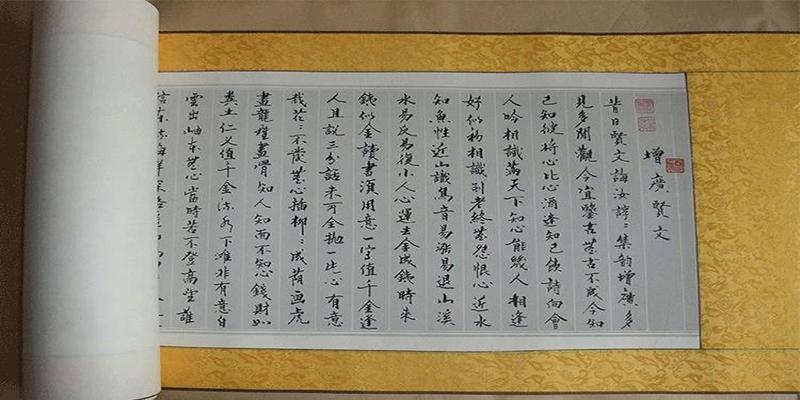 增廣賢文
昔日賢文誨汝諄〻集韵增廣多
見多聞觀今宜鑒古無古不成今知
己知彼將心比心酒逢知己飲詩向會
人吟相識滿天下知心能幾人相逢
好似初相識到老終無怨恨心近水
知魚性近山識鳥音易漲易退山溪
水易反易復小人心運去金成鐵時來
鐵似金讀書須用意一字值千金逢
人且說三分話未可全拋一片心有意
栽花〻不發無心插柳〻成蔭画虎
畫龍難畫骨知人知面不知心錢財如
糞土仁义值千金流水下灘非有意白
雲出岫本無心當時若不登高望誰